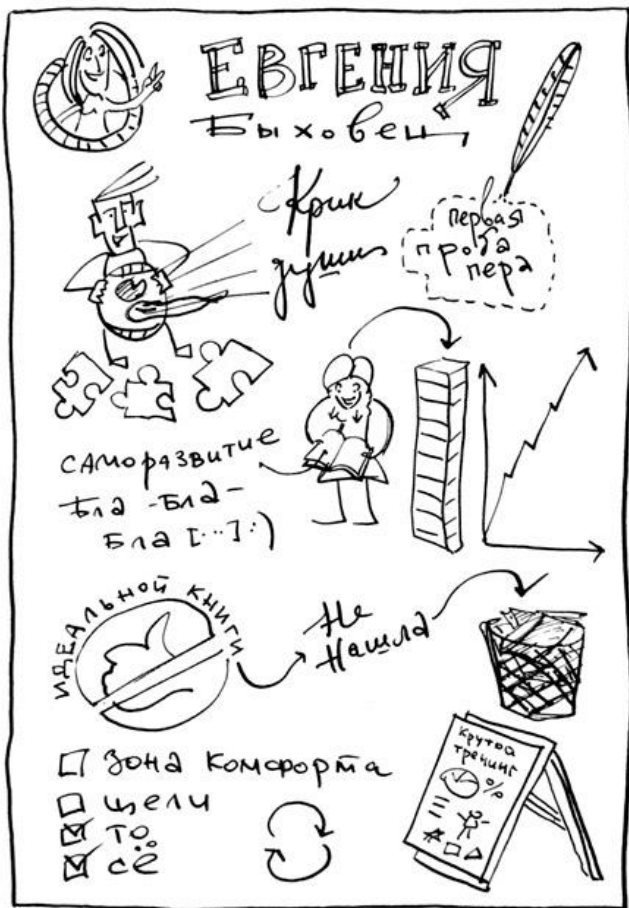 ЕВГЕНИЯ
Быховец
Крик
души
первая
проба
пера
САМОРАЗВИТИЕ
Бла-Бла-
Бла [...] :)
ИДЕАЛЬНОЙ КНИГИ
Не
Нашла
Зона комфорта
щели
то
сё
крутой
тренинг
%